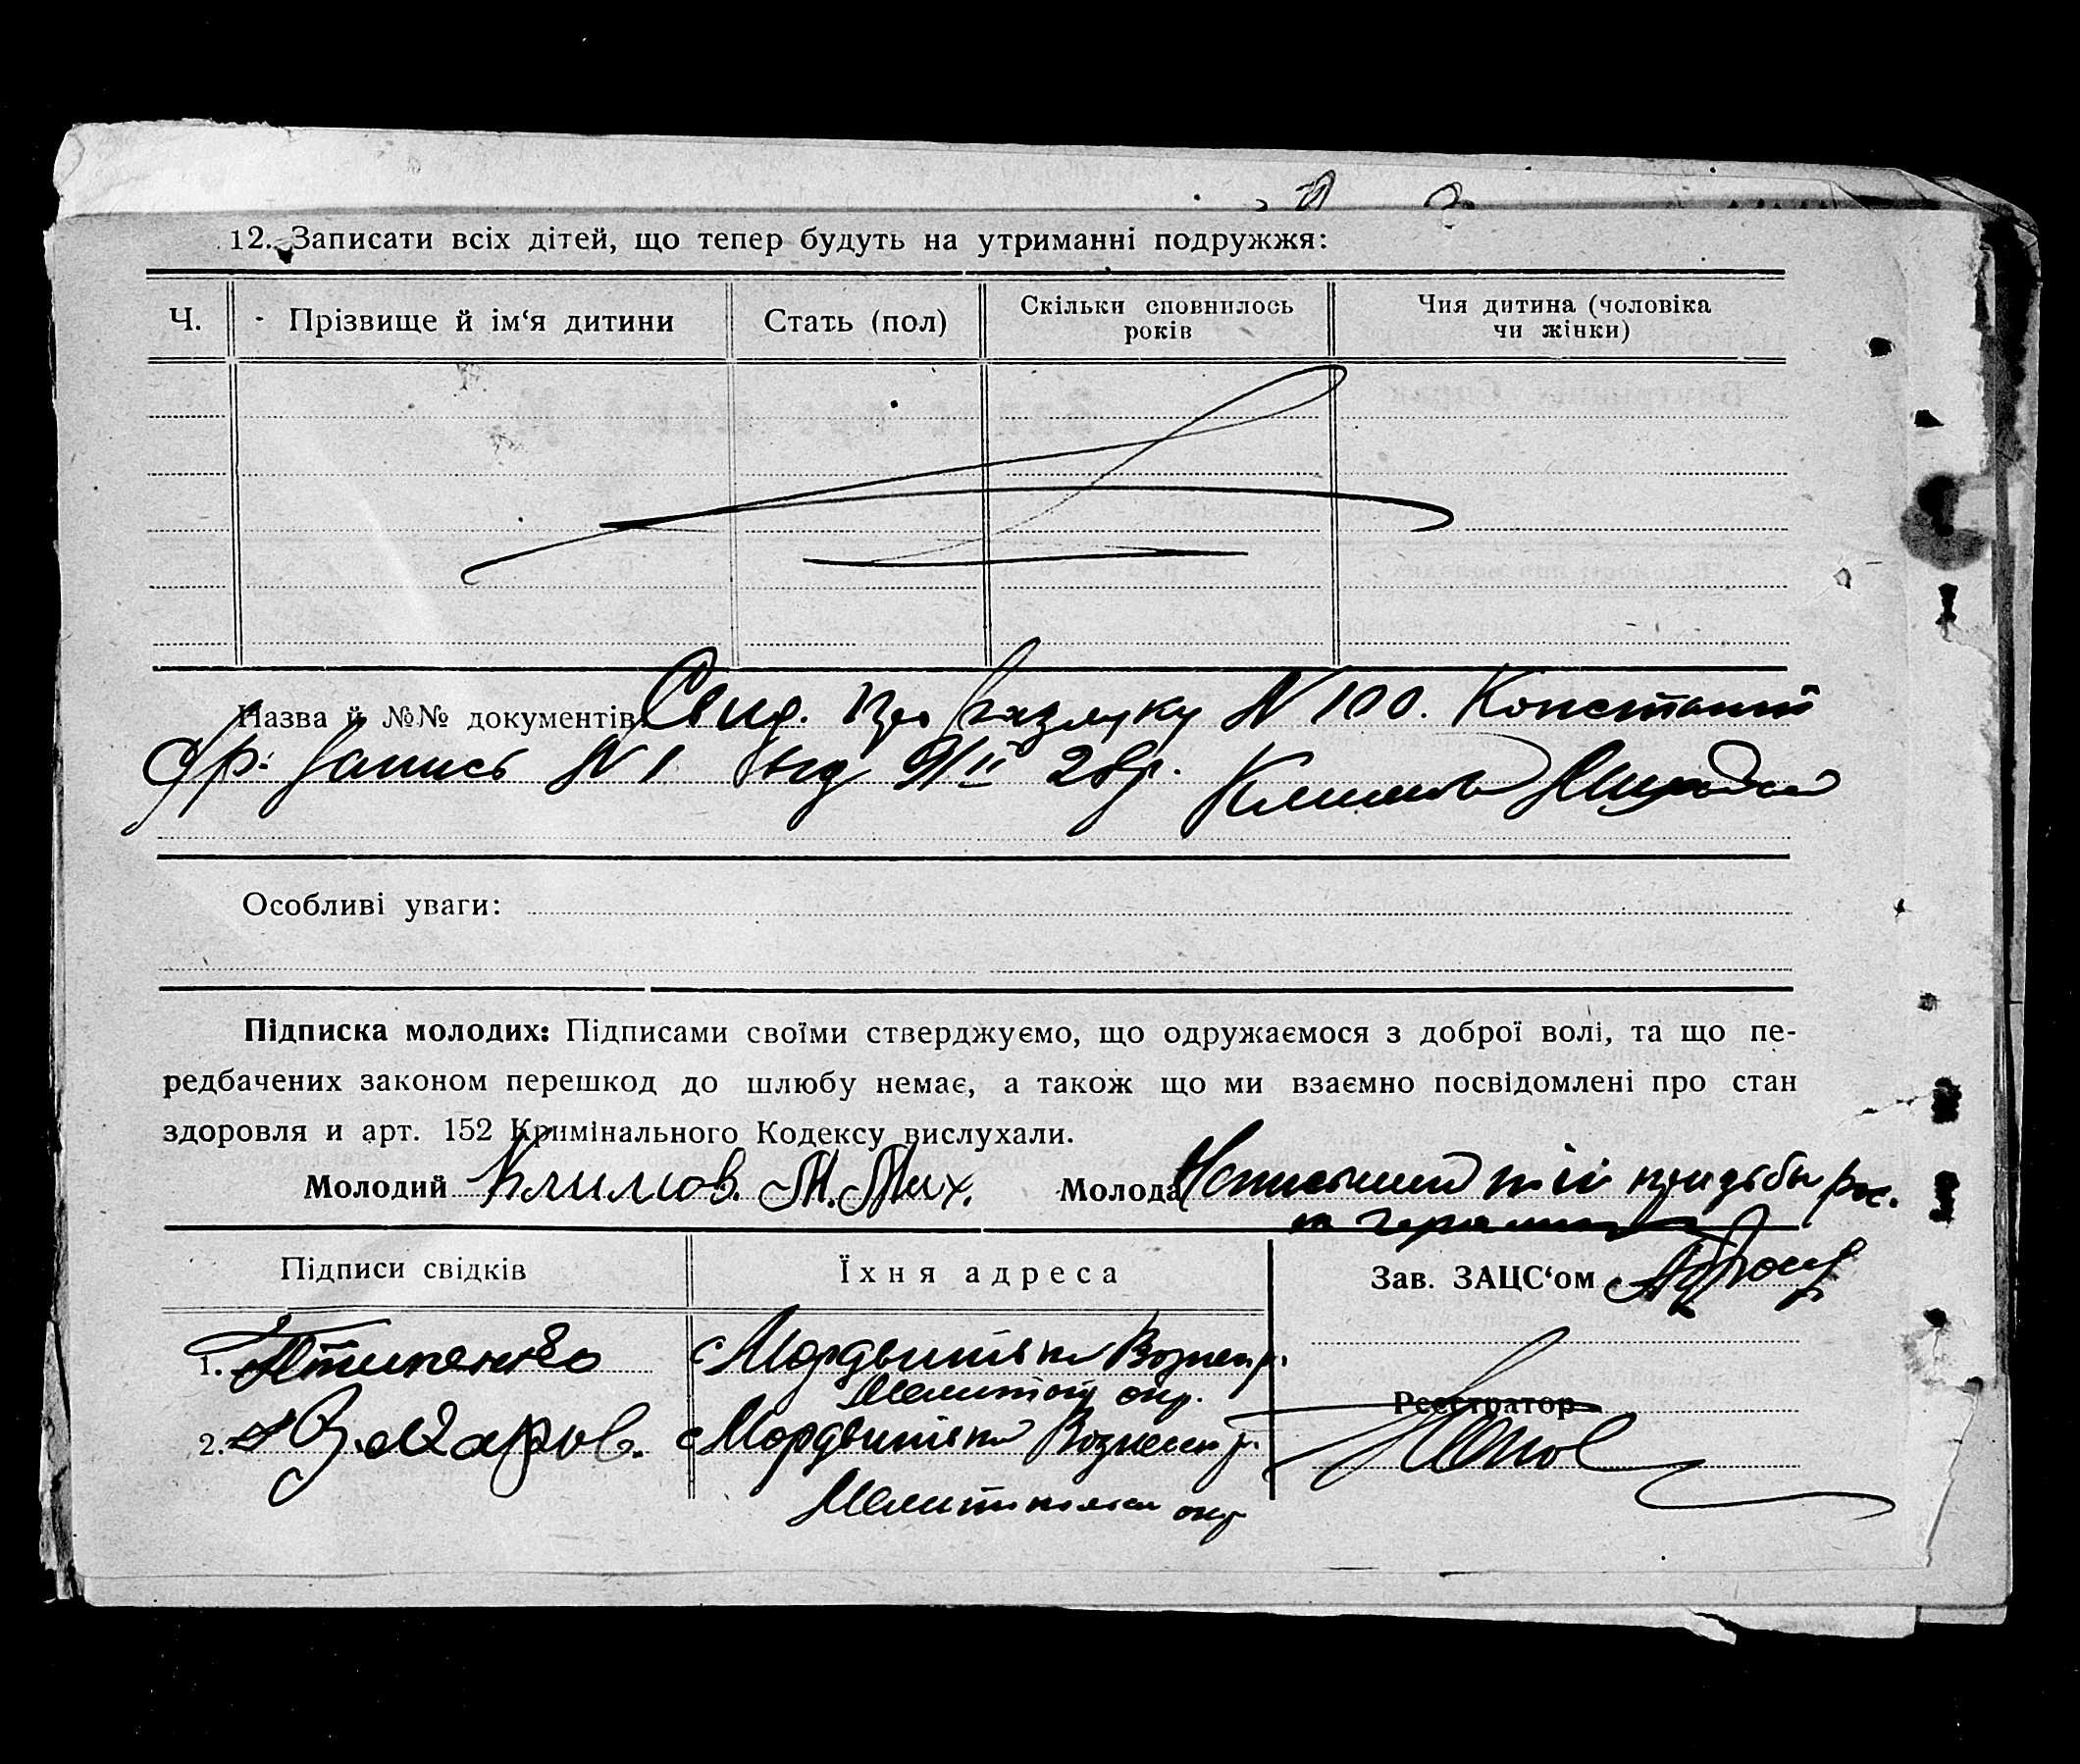 12. Записати всіх дітей, що тепер будуть на утриманні подружжя:
Ч. Прізвище й ім‘я дитини Стать (пол) Скільки сповнилось років Чия дитина (чоловіка чи жінки)
Назва й №№ документів Свид. про разлуку N 100. Констант
др. Запись N 1 від 9/II 28р.
Особливі уваги:
Підписка молодих: Підписами своїми стверджуємо, що одружаємося з доброї волі, та що пе-
редбачених законом перешкод до шлюбу немає, а також що ми взаємно посвідомлені про стан
здоровля и арт. 152 Кримінального Кодексу вислухали.
Молодий Климов. М. Мих. Молода
Підписи свідків Їхня адреса Зав. ЗАЦС‘ом
1. с Мордвинівка Вознесен р.
Мелитоп окр.
Реєстратор
2. Захаров. с Мордвинівка Вознесен р.
Мелитопольск окр